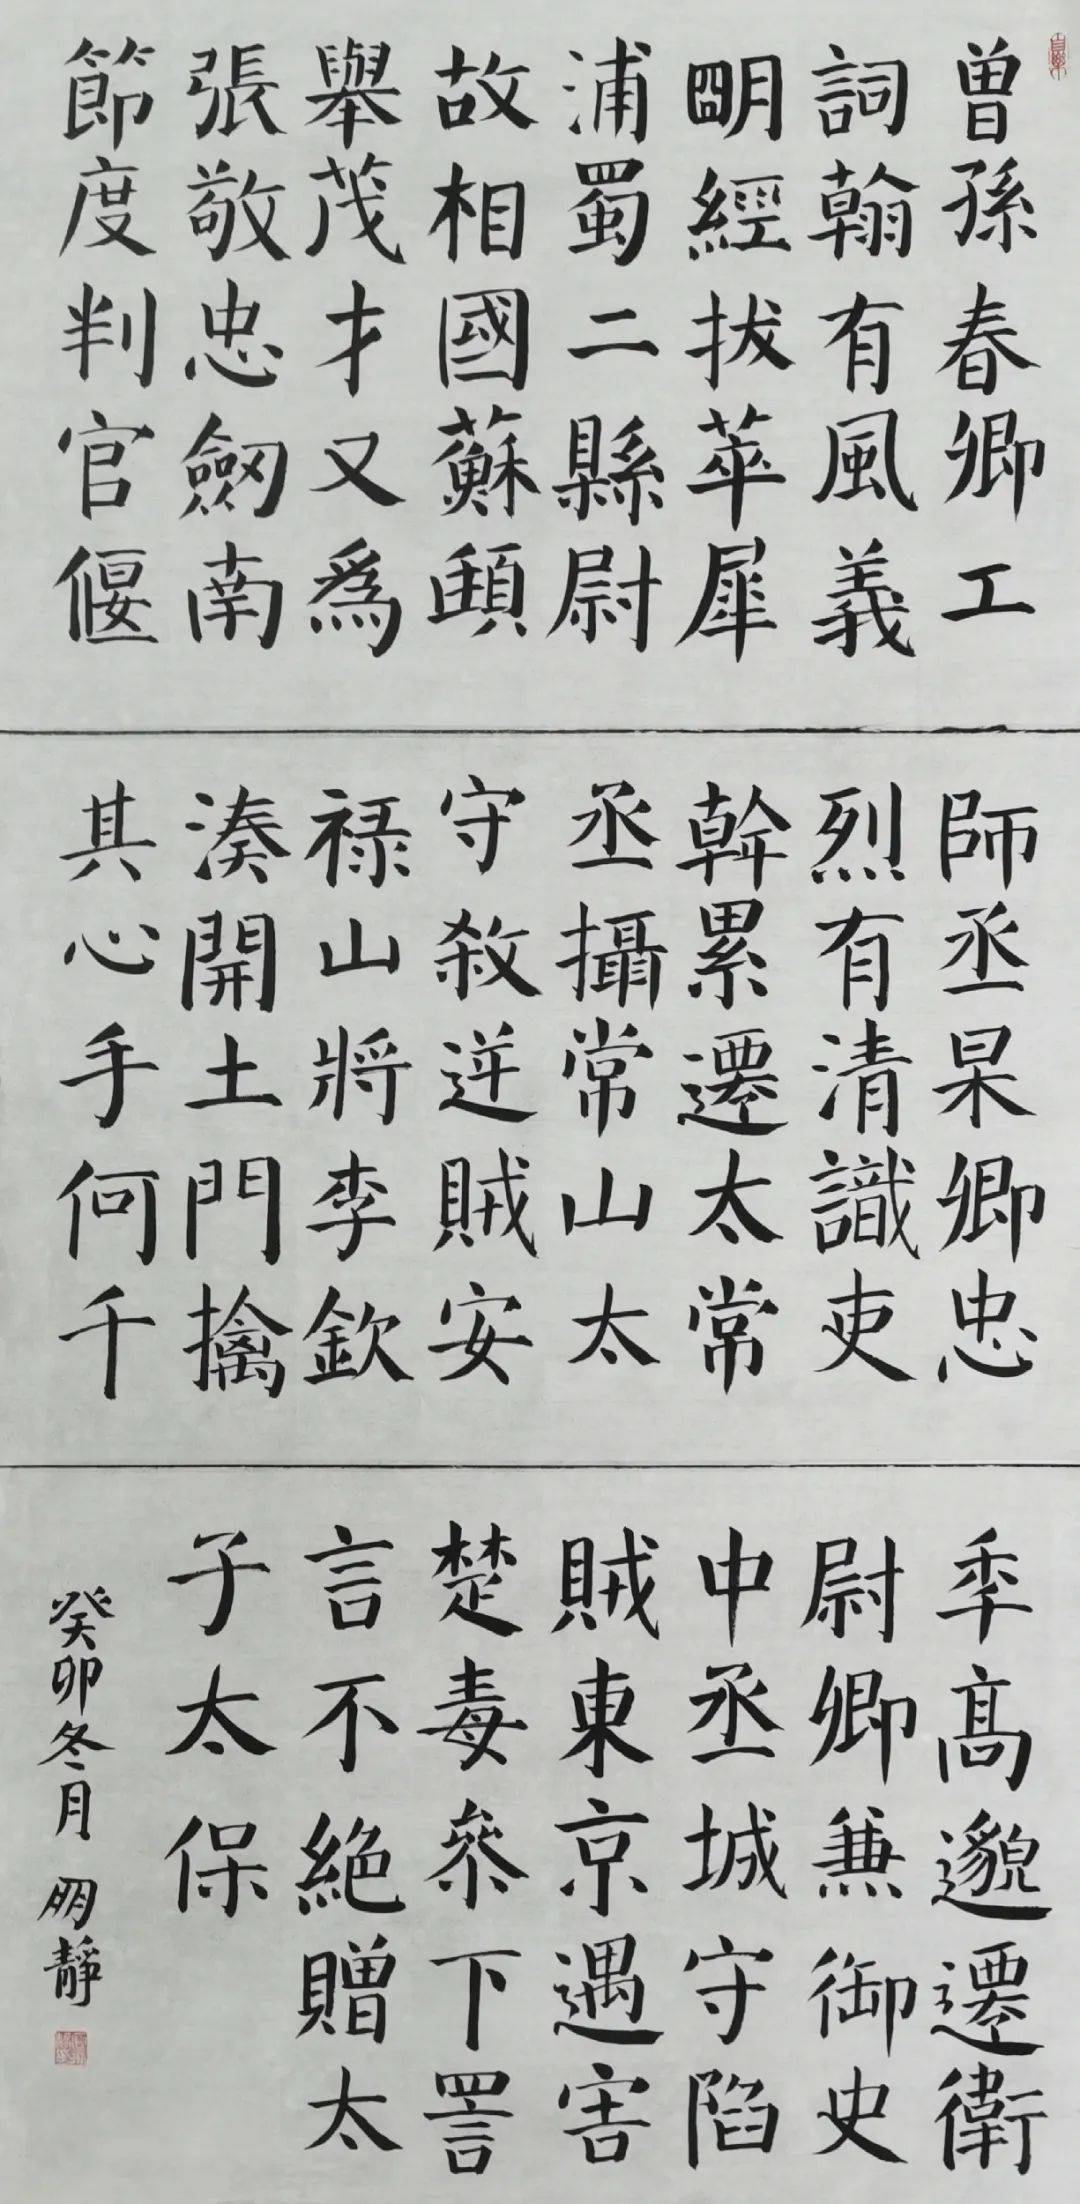 曾孫春卿工
詞翰有風義
明經拔萃犀
浦蜀二縣尉
故相國蘇頲
舉茂才又爲
張敬忠劒南
節度判官偃
師丞杲卿忠
烈有清識吏
幹累遷太常
丞攝常山太
守殺逆賊安
禄山將李欽
湊開土門擒
其心手何千
年高邈遷衛
尉卿兼御史
中丞城守陷
賊東京遇害
楚毒叅下詈
言不絕贈太
子太保
癸卯冬月 明靜